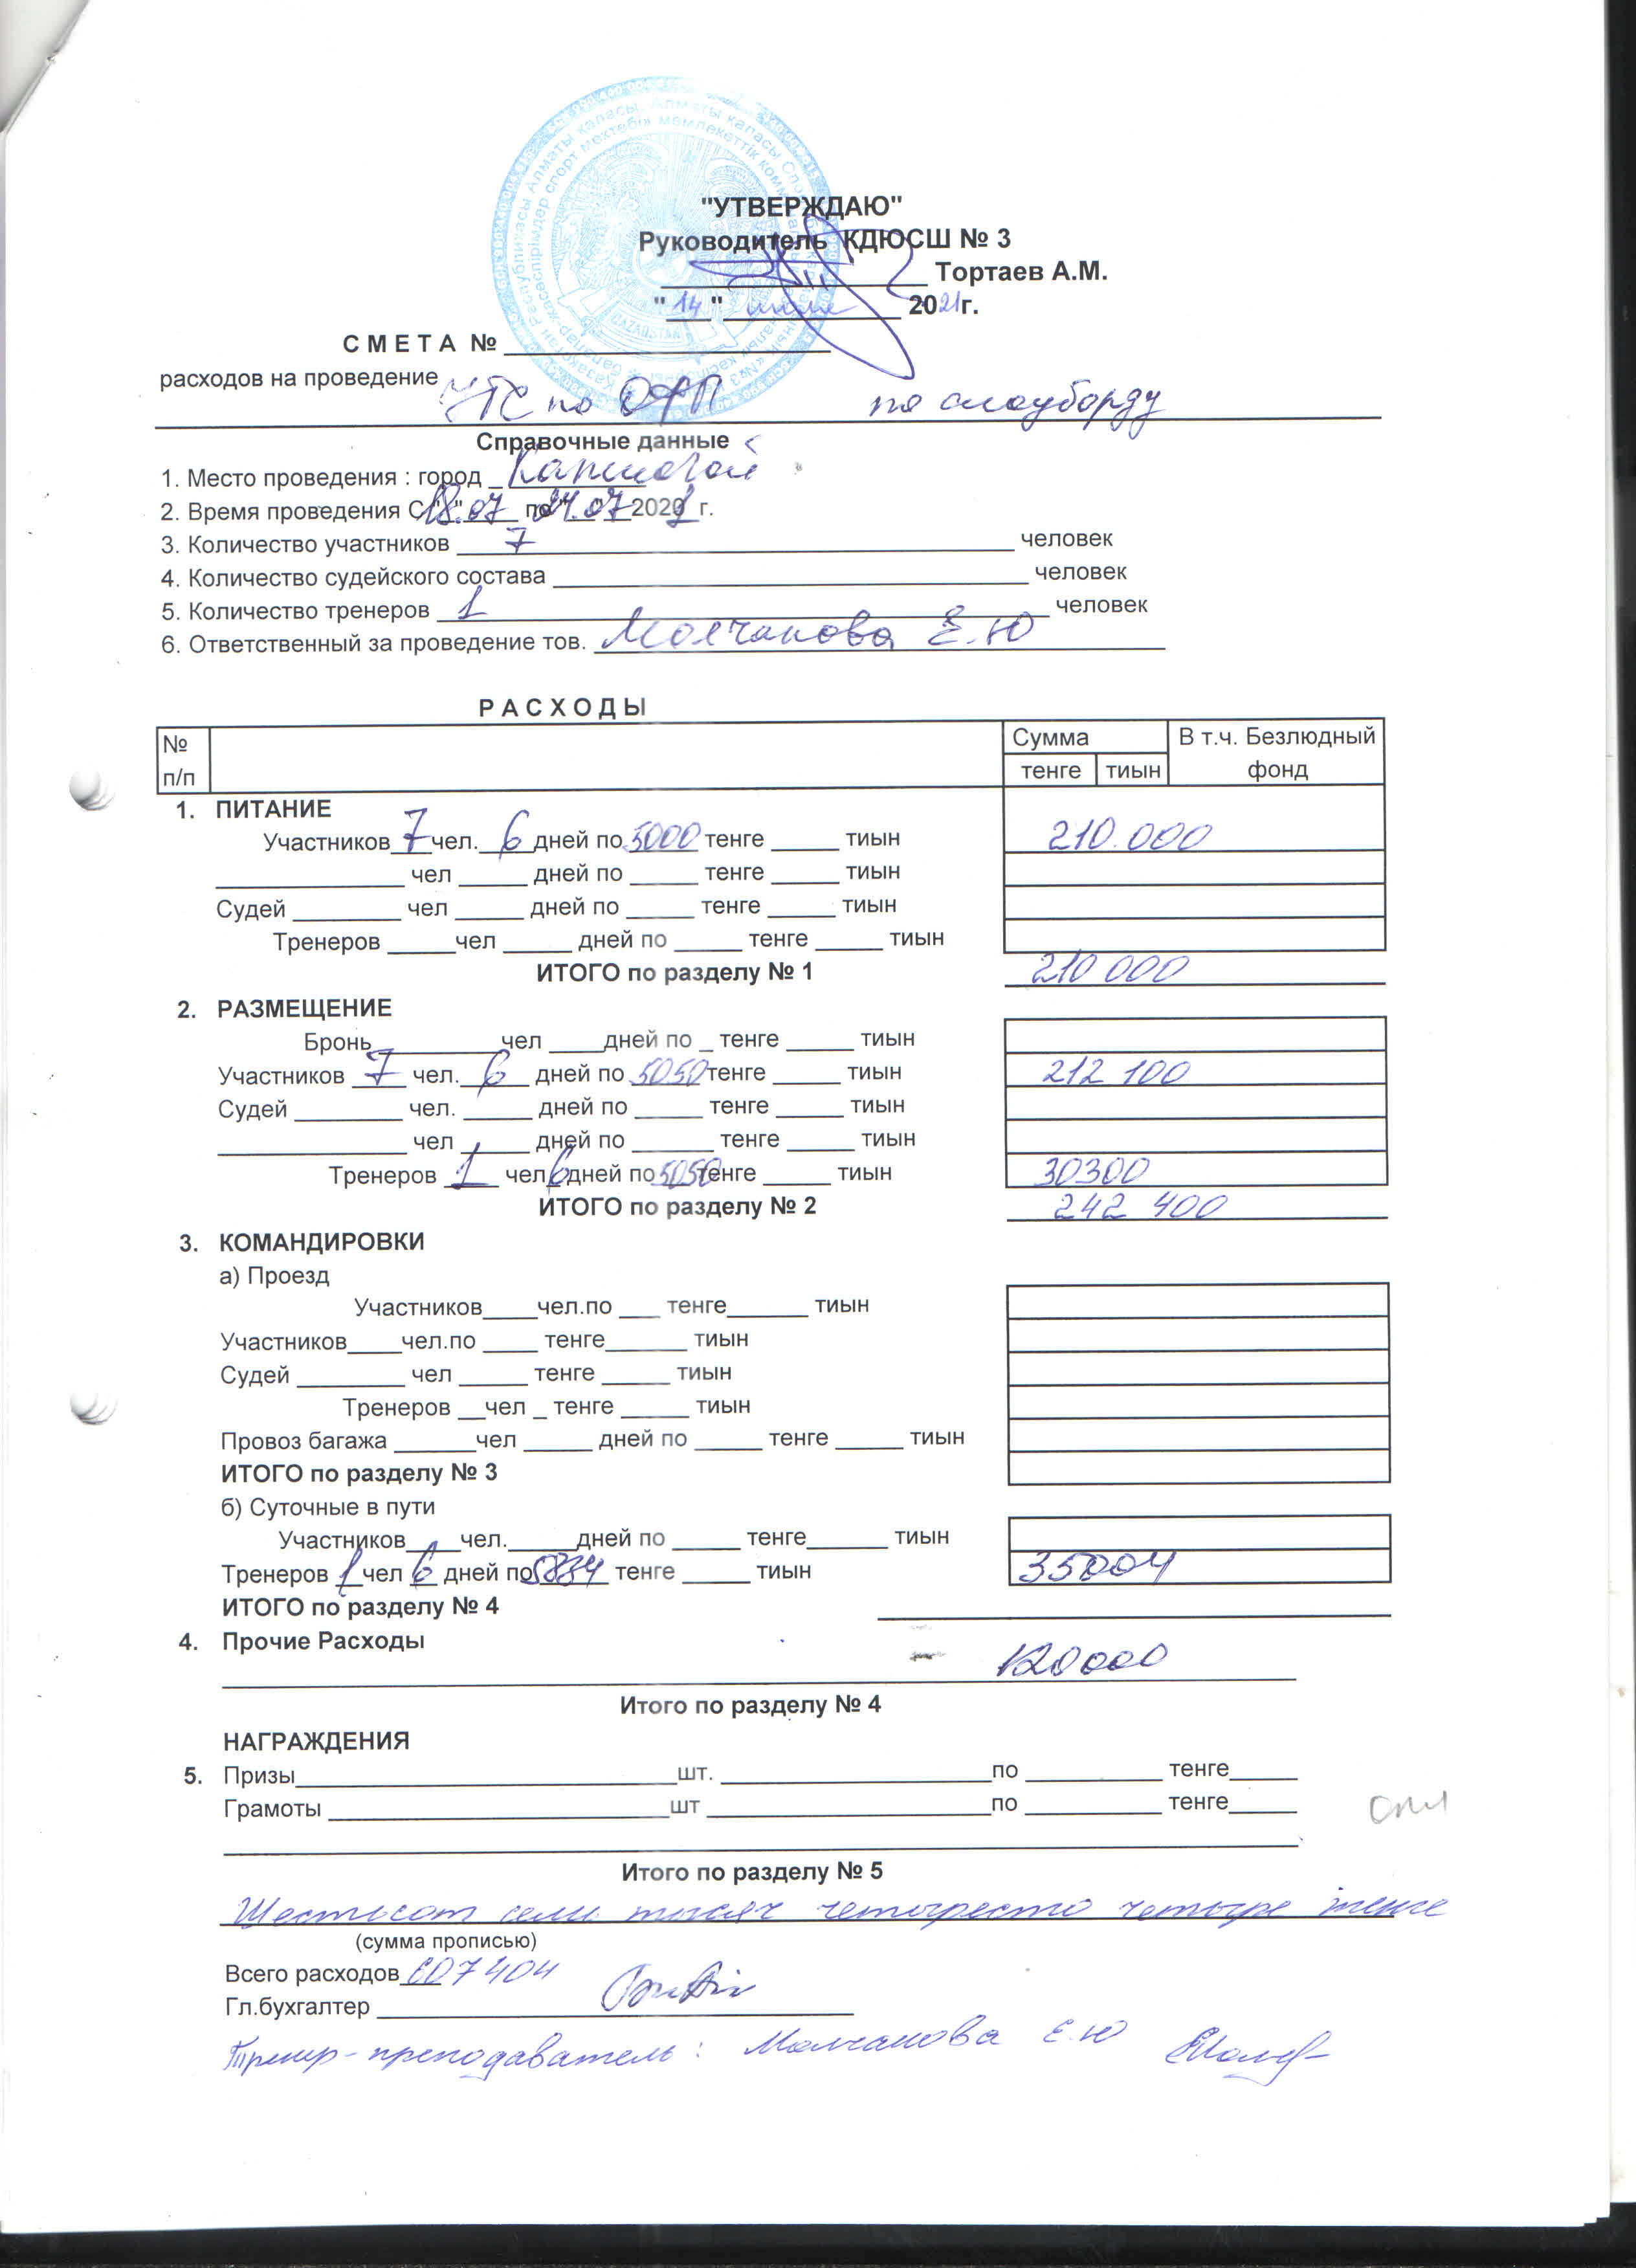 "УТВЕРЖДАЮ"
Руководитель КДЮСШ № 3
____________ Тортаев А.М.
"14" июля 2021г.
С М Е Т А № ____________
расходов на проведение УТС по ОФП по сноуборду
Справочные данные
1. Место проведения : город Капшагай
2. Время проведения С 18.07 по 24.07 2021 г.
3. Количество участников 7 человек
4. Количество судейского состава ____________ человек
5. Количество тренеров 1 человек
6. Ответственный за проведение тов. Молчанова Е.Ю
Р А С Х О Д Ы
№ п/п Сумма В т.ч. Безлюдный фонд
тенге тиын
1. ПИТАНИЕ
Участников 7 чел. 6 дней по 5000 тенге _____ тиын 210.000
____________ чел _____ дней по _____ тенге _____ тиын
Судей ________ чел _____ дней по _____ тенге _____ тиын
Тренеров _____чел _____ дней по _____ тенге _____ тиын
ИТОГО по разделу № 1 210 000
2. РАЗМЕЩЕНИЕ
Бронь_________чел ____дней по _ тенге _____ тиын
Участников 7 чел. 6 дней по 5050 тенге _____ тиын 212 100
Судей ________ чел. _____ дней по _____ тенге _____ тиын
____________ чел _____ дней по ______ тенге _____ тиын
Тренеров 1 чел 6 дней по 5050 тенге _____ тиын 30300
ИТОГО по разделу № 2 242 400
3. КОМАНДИРОВКИ
а) Проезд
Участников____чел.по ___ тенге______ тиын
Участников____чел.по ____ тенге______ тиын
Судей ________ чел _____ тенге _____ тиын
Тренеров __чел _ тенге _____ тиын
Провоз багажа ______чел _____ дней по _____ тенге _____ тиын
ИТОГО по разделу № 3
б) Суточные в пути
Участников____чел._____дней по _____ тенге______ тиын
Тренеров 1 чел 6 дней по 5834 тенге _____ тиын 35004
ИТОГО по разделу № 4
4. Прочие Расходы 120000
Итого по разделу № 4
НАГРАЖДЕНИЯ
5. Призы____________шт. ____________по ________ тенге_____
Грамоты ____________шт ____________по ________ тенге_____
Итого по разделу № 5
Шестьсот семь тысяч четыресто четыре тенге
(сумма прописью)
Всего расходов 607404
Гл.бухгалтер ____________
Тренер-преподаватель: Молчанова Е.Ю